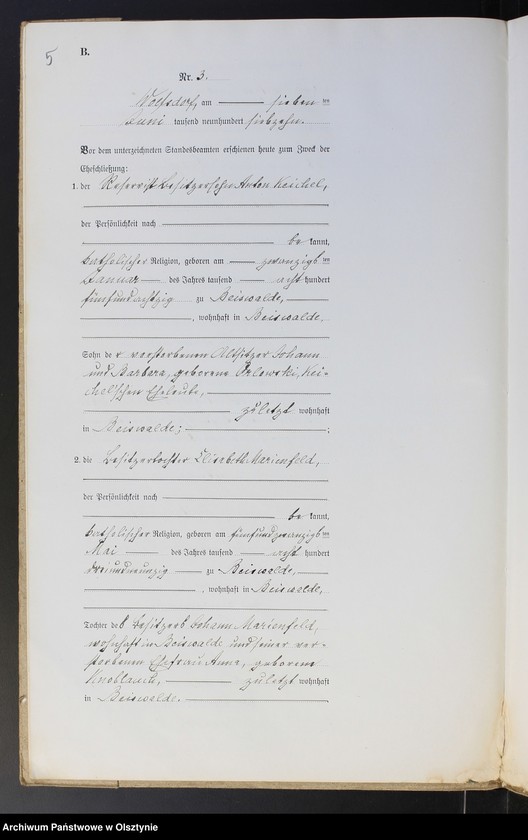 5
B.
Nr. 3.
Wolfsdorf, am sieben ten
Juni tausend neunhundert siebzehn.
Vor dem unterzeichneten Standesbeamten erschienen heute zum Zweck der
Eheschließung:
1. der Reservist Besitzersohn Anton Keichel,
der Persönlichkeit nach
be kannt,
katholischer Religion, geboren am zwanzigs ten
Januar des Jahres tausend acht hundert
fünfundachtzig zu Beiswalde,
, wohnhaft in Beiswalde.
Sohn der verstorbenen Altsitzer Johann
und Barbara, geborene Orlowski, Kei-
chel'schen Eheleute,
zuletzt wohnhaft
in Beiswalde; ;
2. die Besitzertochter Elisabeth Marienfeld,
der Persönlichkeit nach
be kannt,
katholischer Religion, geboren am fünfundzwanzigs ten
Mai des Jahres tausend acht hundert
dreiundneunzig zu Beiswalde,
, wohnhaft in Beiswalde,
Tochter des Besitzers Johann Marienfeld,
wohnhaft in Beiswalde und seiner ver-
storbenen Ehefrau Anna, geborene
Knoblauch, zuletzt wohnhaft
in Beiswalde.
Archiwum Państwowe w Olsztynie